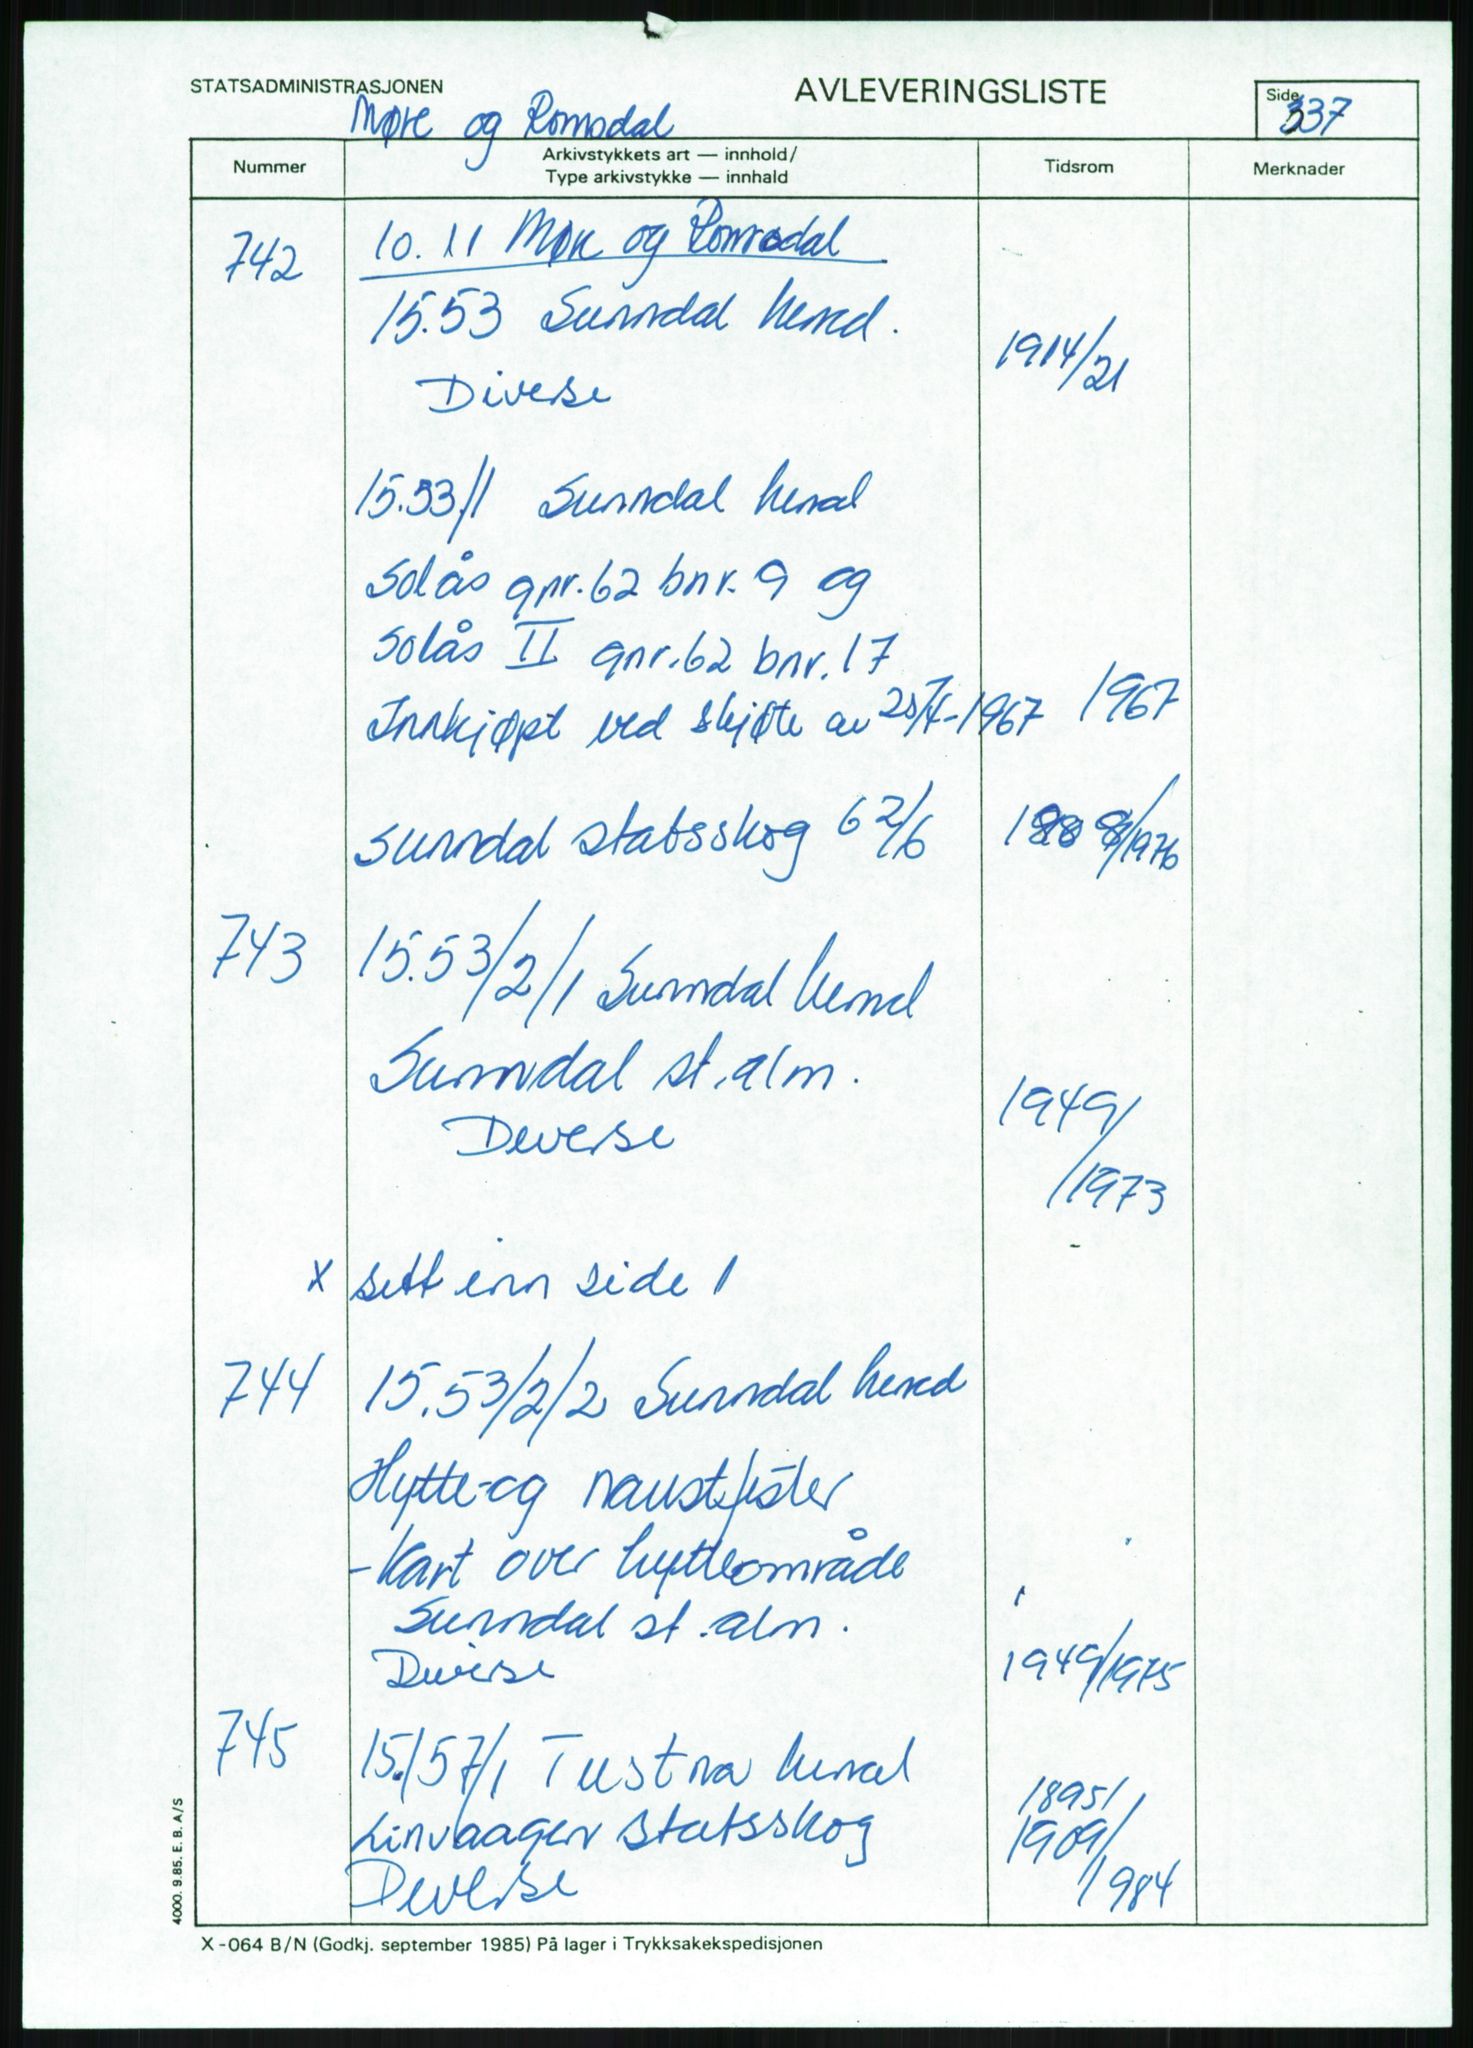 STATSADMINISTRASJONEN
AVLEVERINGSLISTE
Side
337
Møre og Romsdal
Nummer
Arkivstykkets art — innhold/
Type arkivstykke — innhald
Tidsrom
Merknader
742
10.11 Møre og Romsdal
15.53 Sunndal herred.
Diverse
1914/21
15.53/1 Sunndal herred
Solås gnr. 62 bnr. 9 og
Solås II gnr. 62 bnr. 17
Innkjøpt ved skjøte av 20/4-1967 1967
Sunndal statsskog 62/6
/1976
743 15.53/2/1 Sunndal herred
Sunndal st. alm.
Diverse
1949/
/1973
x sett inn side 1
744 15.53/2/2 Sunndal herred
Hytte- og naustfester
- Kart over hytteområde
Sunndal st. alm.
Diverse
1949/1975
745
15./57/1 Tustna herred
Linvaagen statsskog
Diverse
1895/
1909/
/1984
4000. 9.85. E. B. A/S
X-064 B/N (Godkj. september 1985) På lager i Trykksakekspedisjonen